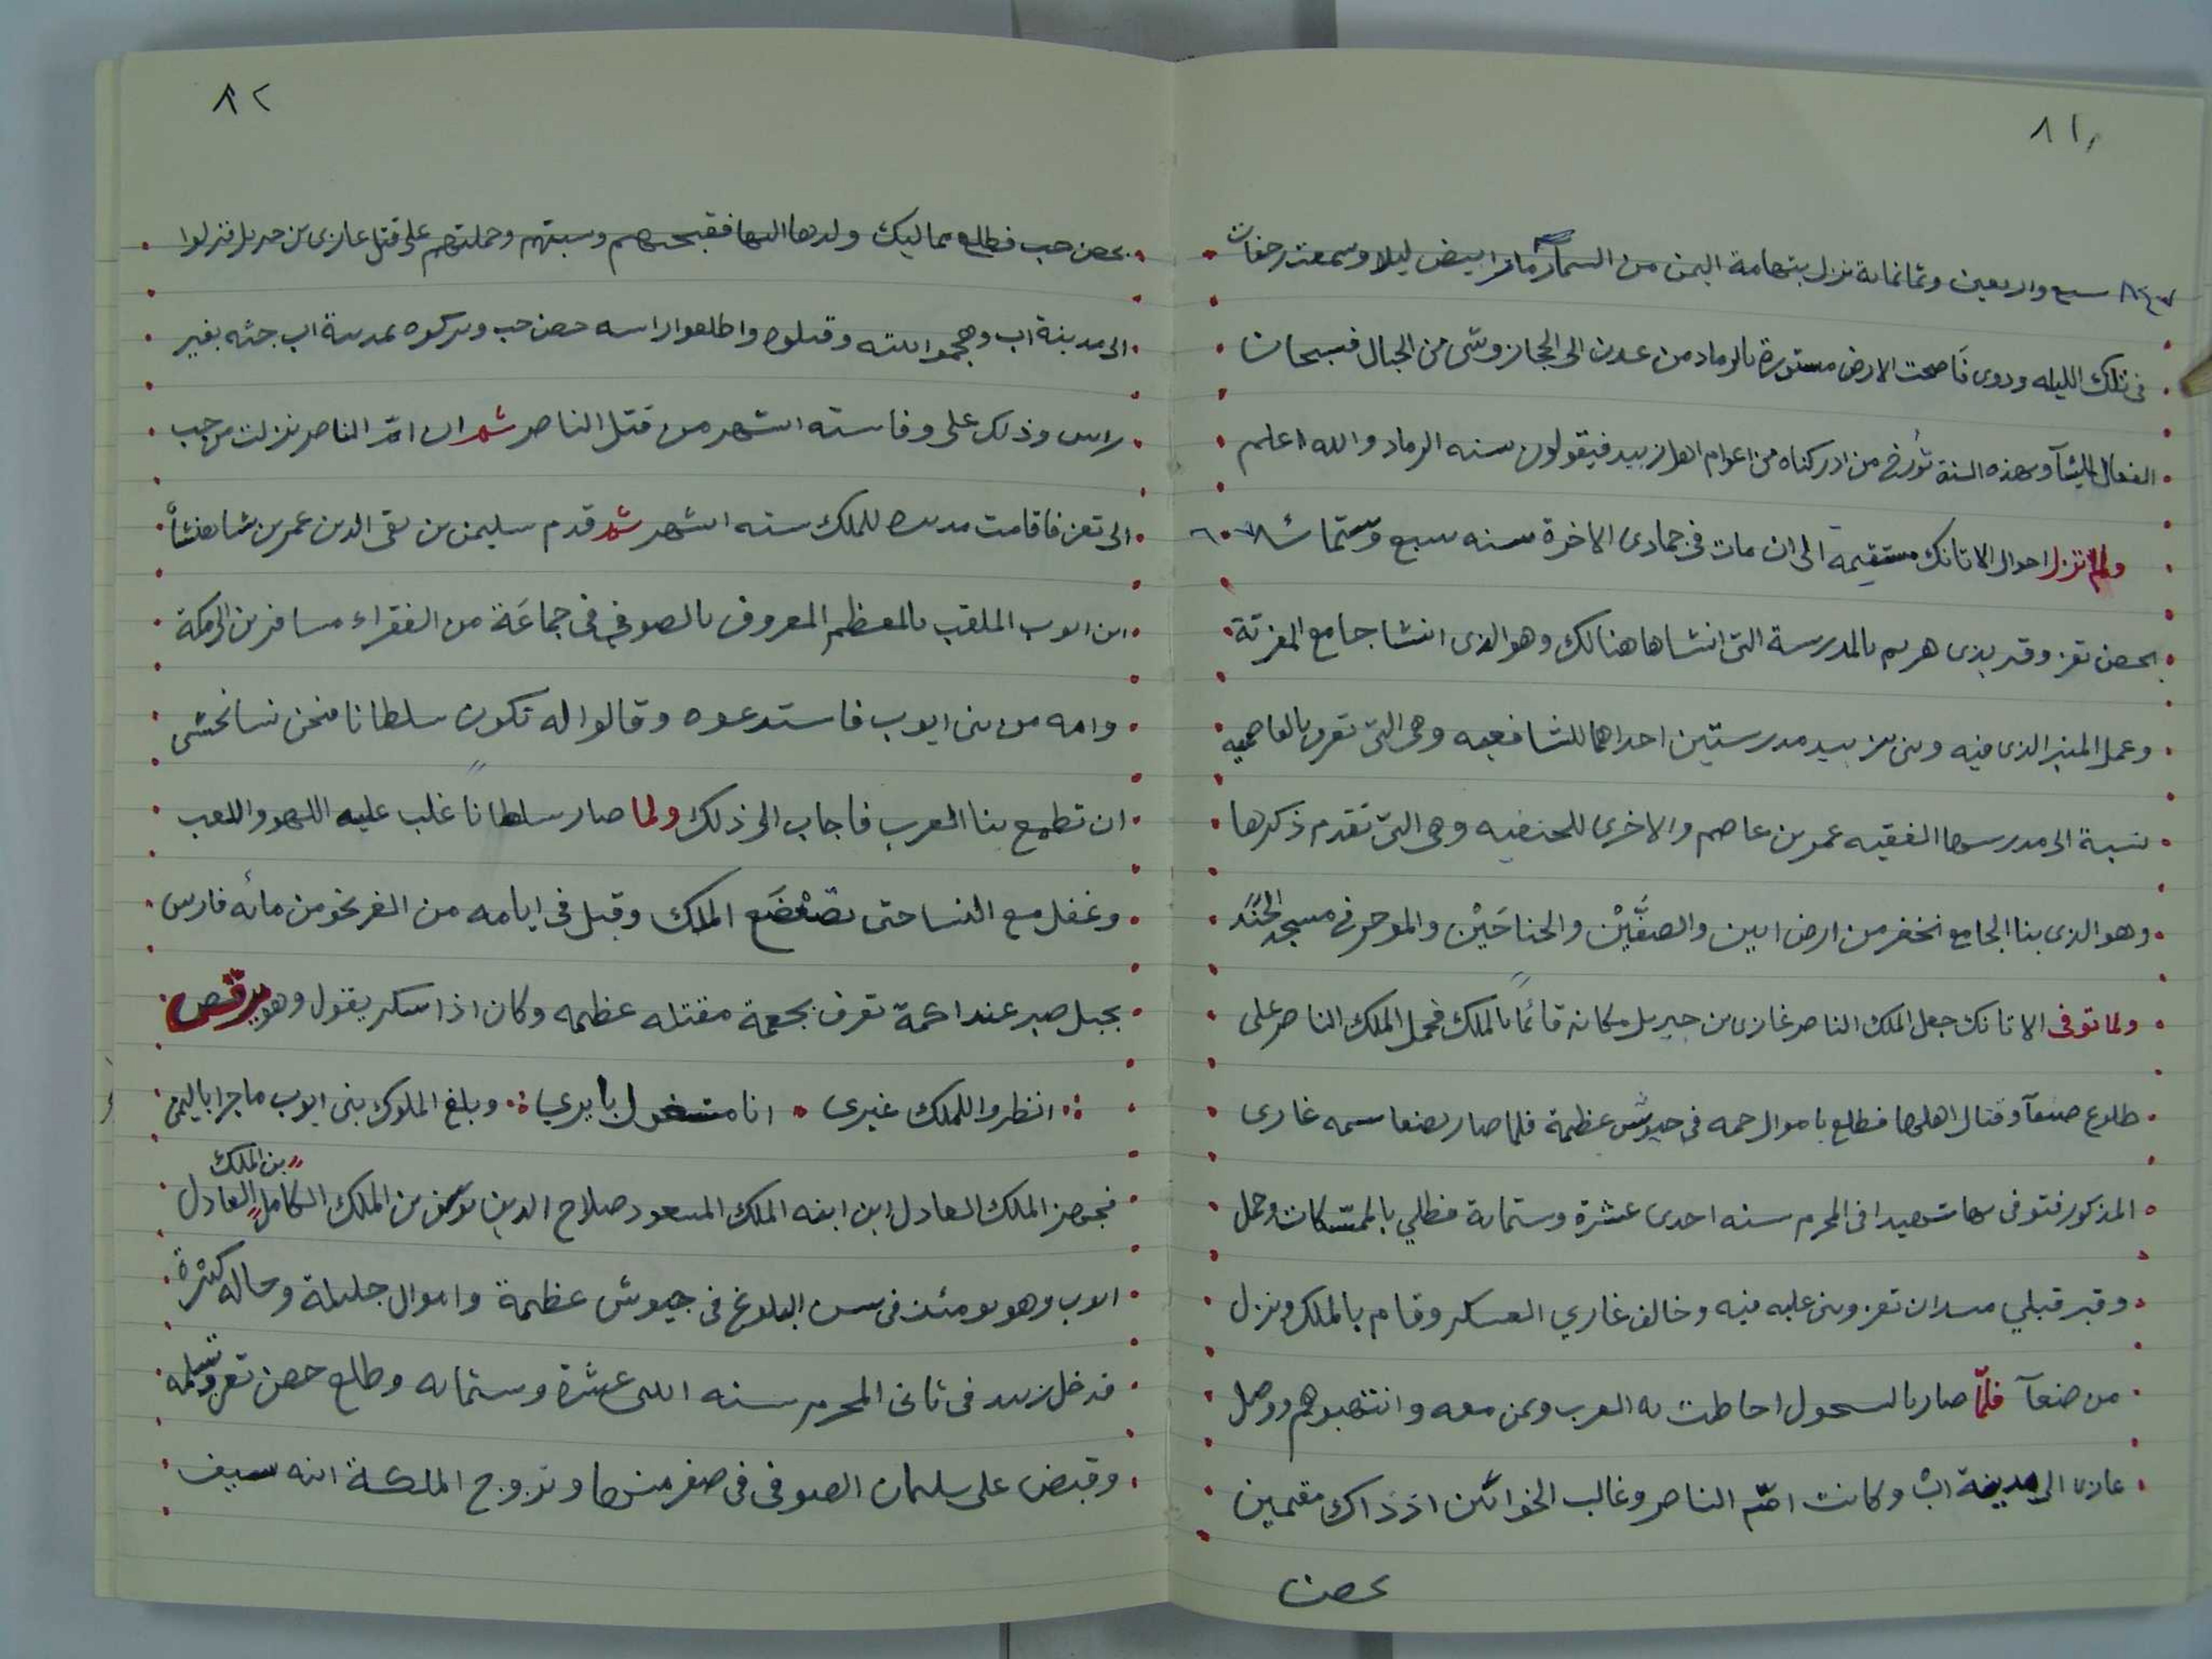 ٨١
٨٤٧ سبع واربعين وثمانمائة نزل بتهامة اليمن من السماء رماد ابيض ليلا وسمعت رجفات
فى تلك الليله ودوى فاصبحت الارض مستورة بالرماد من عدن الى الحجاز وشى من الجبال فسبحان
الفعال لما يشآ وبهذه السنة تُورخ من ادركناه من اعوام اهل زبيد فيقولون سنه الرماد والله اعلم
ولم تزل احوال الاتابك مستقيمة الى ان مات فى جمادى الاخرة سنه سبع وستمائة ٦٠٧
بحصن تعز وقبر بذى هريم بالمدرسة التى انشاها هنالك وهو الذى انشا جامع المغربة
وعمل المنبر الذى فيه وبنى بزبيد مدرستين احداهما للشافعيه وهى التى تعرف بالعاصميه
نسبة الى مدرسها الفقيه عمر بن عاصم والاخرى للحنفيه وهى التى تقدم ذكرها
وهو الذى بنا الجامع بخنفر من ارض ابين والصفَّيْن والجناحَيْن والموخر فى مسجد الجَنَد
ولما توفى الاتابك جعل الملك الناصر غازى بن جبريل مكانه قائمًا بالملك فحمل الملك الناصر على
طلوع صنعآ وقتال اهلها فطلع باموال جمه فى جيوش عظيمة فلما صار بصنعا سمه غازى
المذكور فتوفى بها شهيدا فى المحرم سنه احدى عشرة وستمائة فطلي بالممسكات وحمل
وقبر قبلي ميدان تعز وبنى عليه قبه وخالف غازي العسكر وقام بالملك ونزل
من صنعآ فلمّا صار بالسحول احاطت به العرب وبمن معه وانتهبوهم ووصل
غازى الى مدينة ابْ وكانت امّ الناصر وغالب الخواتين اذ ذاك مقيمين
بحصن
٨٢
بحصن حب فطلع مماليك ولدها اليها فقبحتهم وسبتهم وحملتهم على قتل غازى بن جبريل فنزلوا
الى مدينة اب وهجموا بيته وقتلوه واطلعوا راسه حصن حب وتركوه بمدينة اب جثه بغير
راس وذلك على وفا سته اشهر من قتل الناصر ثم ان امّ الناصر نزلت من حب
الى تعز فاقامت مدبرة للملك سته اشهر ثم قدم سليمن بن تقى الدين عمر بن شاهنشأ
ابن ايوب الملقب بالمعظم المعروف بالصوفي فى جماعَة من الفقراء مسافرين الى مكة
وامه من بنى ايوب فاستدعوه وقالوا له تكون سلطانا فنحن نسا نخشى
ان تطمع بنا العرب فاجاب الى ذلك ولما صار سلطانا غلب عليه اللهو واللعب
وغفل مع النسا حتى تضَعْضَع الملك وقتل فى ايامه من الغز نحو من مائه فارس
بجبل صبر عند اكمة تعرف بجعمة مقتله عظيمه وكان اذا سكر يقول وهو يرقص
انظروا للملك غيرى انا مشغول بايري وبلغ الملوك بنى ايوب ما جرا باليمن
فجهز الملك العادل ابن ابنه الملك المسعود صلاح الدين يوسف بن الملك الكامل بن الملك العادل
ايوب وهو يومئذ فى سن البلوغ فى جيوش عظيمة واموال جليلة وخاله كثيرة
فدخل زبيد فى ثانى المحرم سنه اثنى عشرة وستمايه وطلع حصن تعز وتسلمه
وقبض على سليمان الصوفى فى صفر منها وتزوج الملكة ابنه سيف